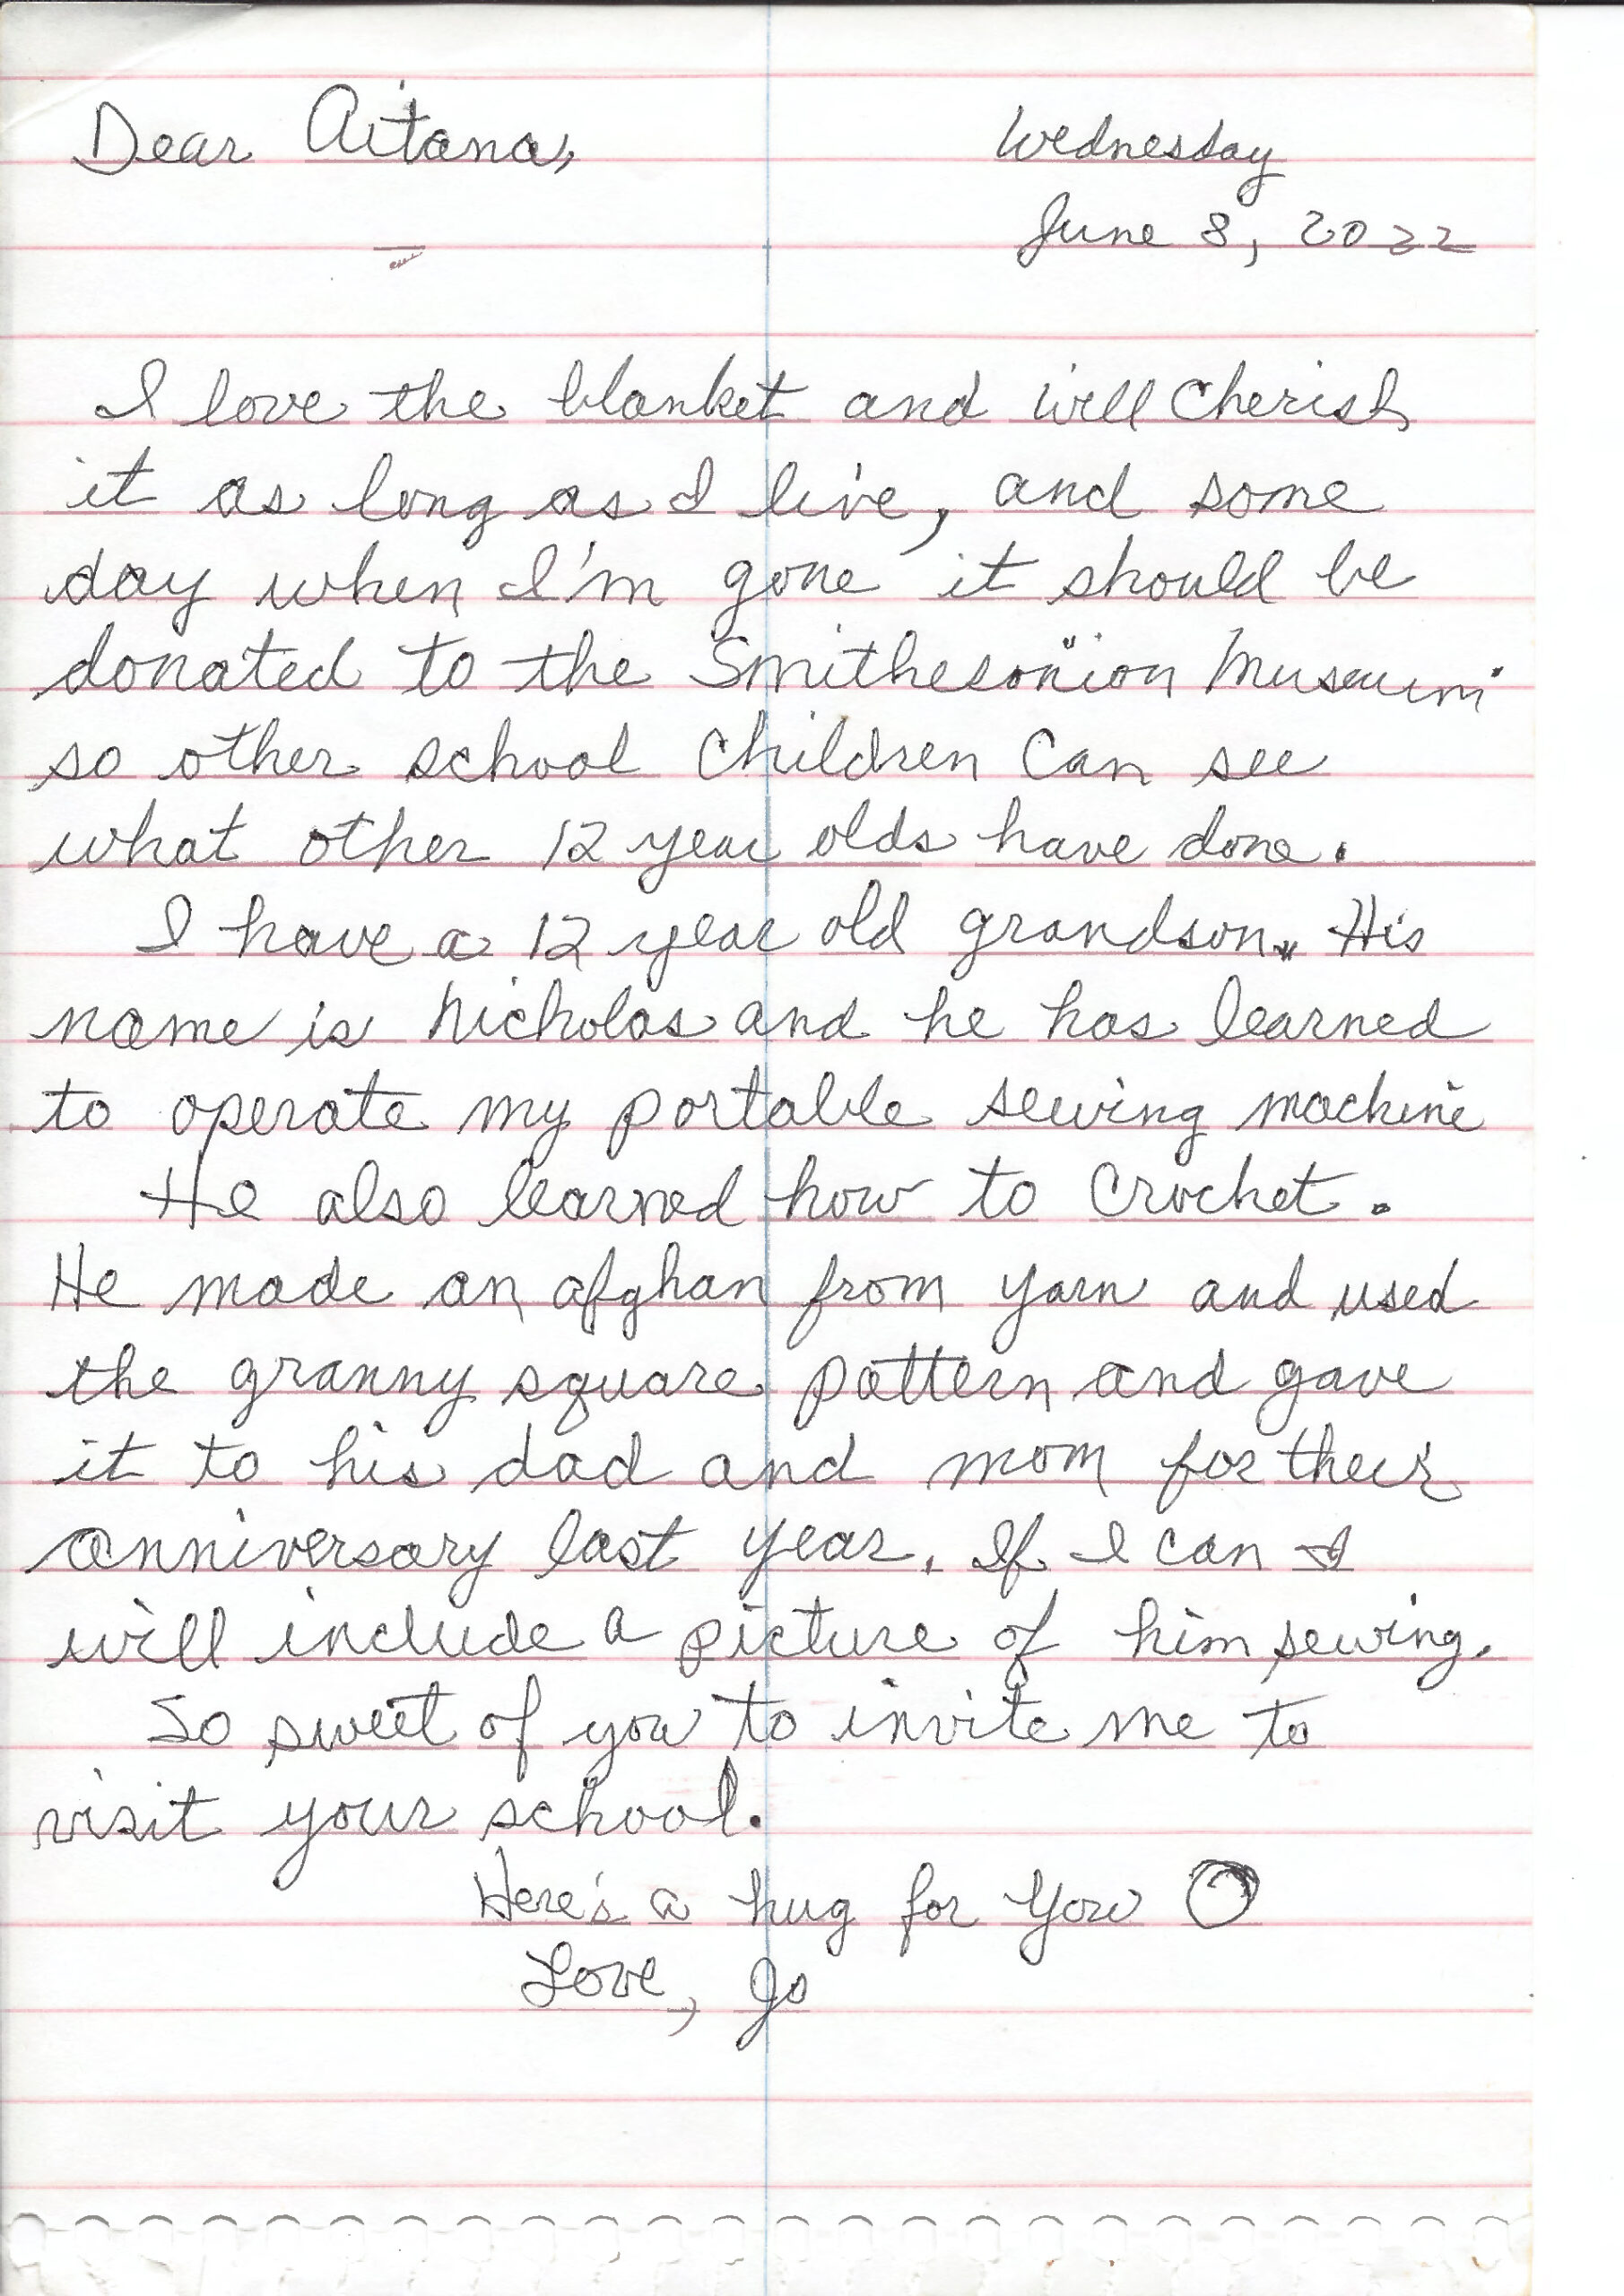 Dear Aitana,
Wednesday
June 8, 2022
I love the blanket and will cherish
it as long as I live, and some
day when I'm gone it should be
donated to the Smithesonion Museum
so other school children can see
what other 12 year olds have done.
I have a 12 year old grandson. His
name is Nicholas and he has learned
to operate my portable sewing machine
He also learned how to crochet.
He made an afghan from yarn and used
the granny square pattern and gave
it to his dad and mom for their
anniversary last year. If I can I
will include a picture of him sewing.
So sweet of you to invite me to
visit your school.
Here's a hug for you O
Love, Jo